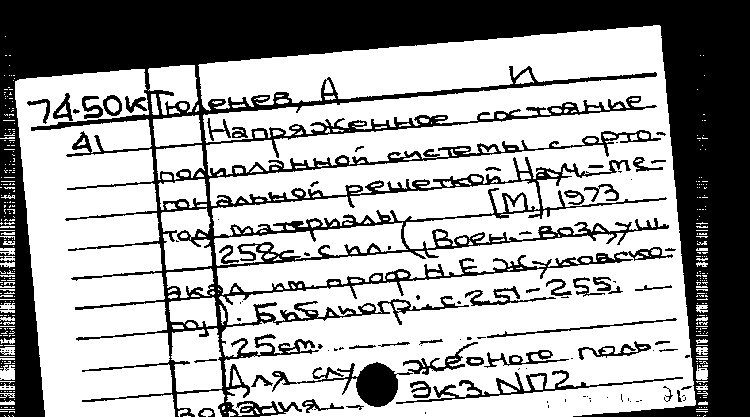 74-50К Тюленев, А И
41 Напряженное состояние
полипланной системы с орто-
гональной решеткой Науч.-ме-
тод. материалы [М.], 1973.
258с. с ил. (Воен.-воздуш.
акад. им. проф. Н. Е. Жуковско-
го). Библиогр.: с. 251-255.
25см.
Для служебного поль-
зования. Экз. №2.